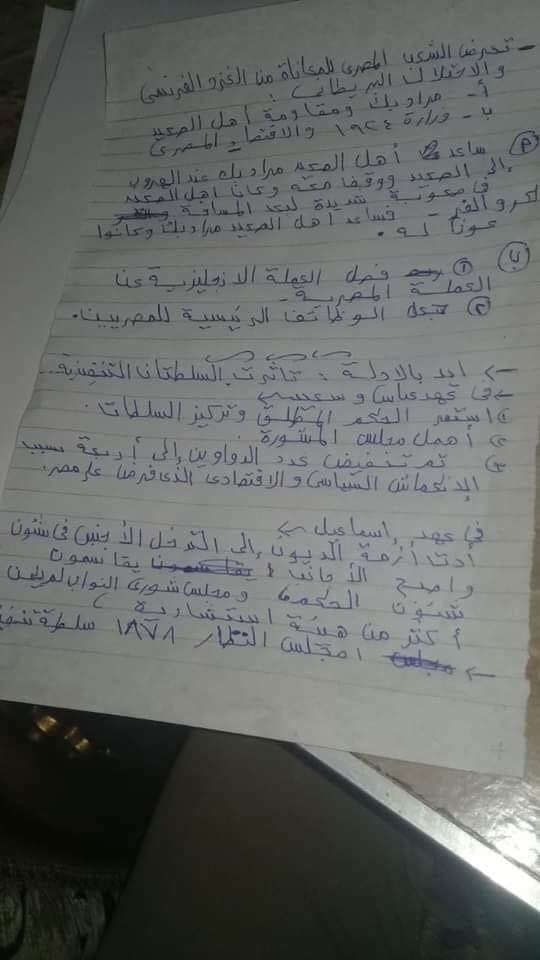 - تعرض الشعب المصرى للمعاناة من الغزو الفرنسى
والاحتلال البريطانى :
أ- مراد بك ومقاومة أهل الصعيد
ب- وزارة ١٩٢٤ والاقتصاد المصرى
(أ) ساعد أهل الصعيد مراد بك عند الهروب
إلى الصعيد ووقفوا معه وعانا أهل الصعيد
فى صعوبة شديدة لبعد المسافة
فساعد أهل الصعيد مراد بك وكانوا
عونا له .
(ب) ① فصل العملة الانجليزية عن
العملة المصرية .
② الوظائف الرئيسية للمصريين .
← ايد بالادلة : تأثرت السلطتان التنفيذية
← فى عهد عباس وسعيد
① استمر الحكم المطلق وتركيز السلطات .
② أهمل مجلس المشورة
③ تم تخفيض عدد الدواوين إلى أربعة بسبب
الإنكماش السياسى والاقتصادى الذى فرض على مصر .
فى عهد إسماعيل ←
أدت أزمة الديون إلى التدخل الأجنبى فى شئون
واصبح الأجانب يقاسمون
شئون الحكم ومجلس شورى النواب لم يكن
أكثر من هيئة استشارية
← مجلس النظار ١٨٧٨ سلطة